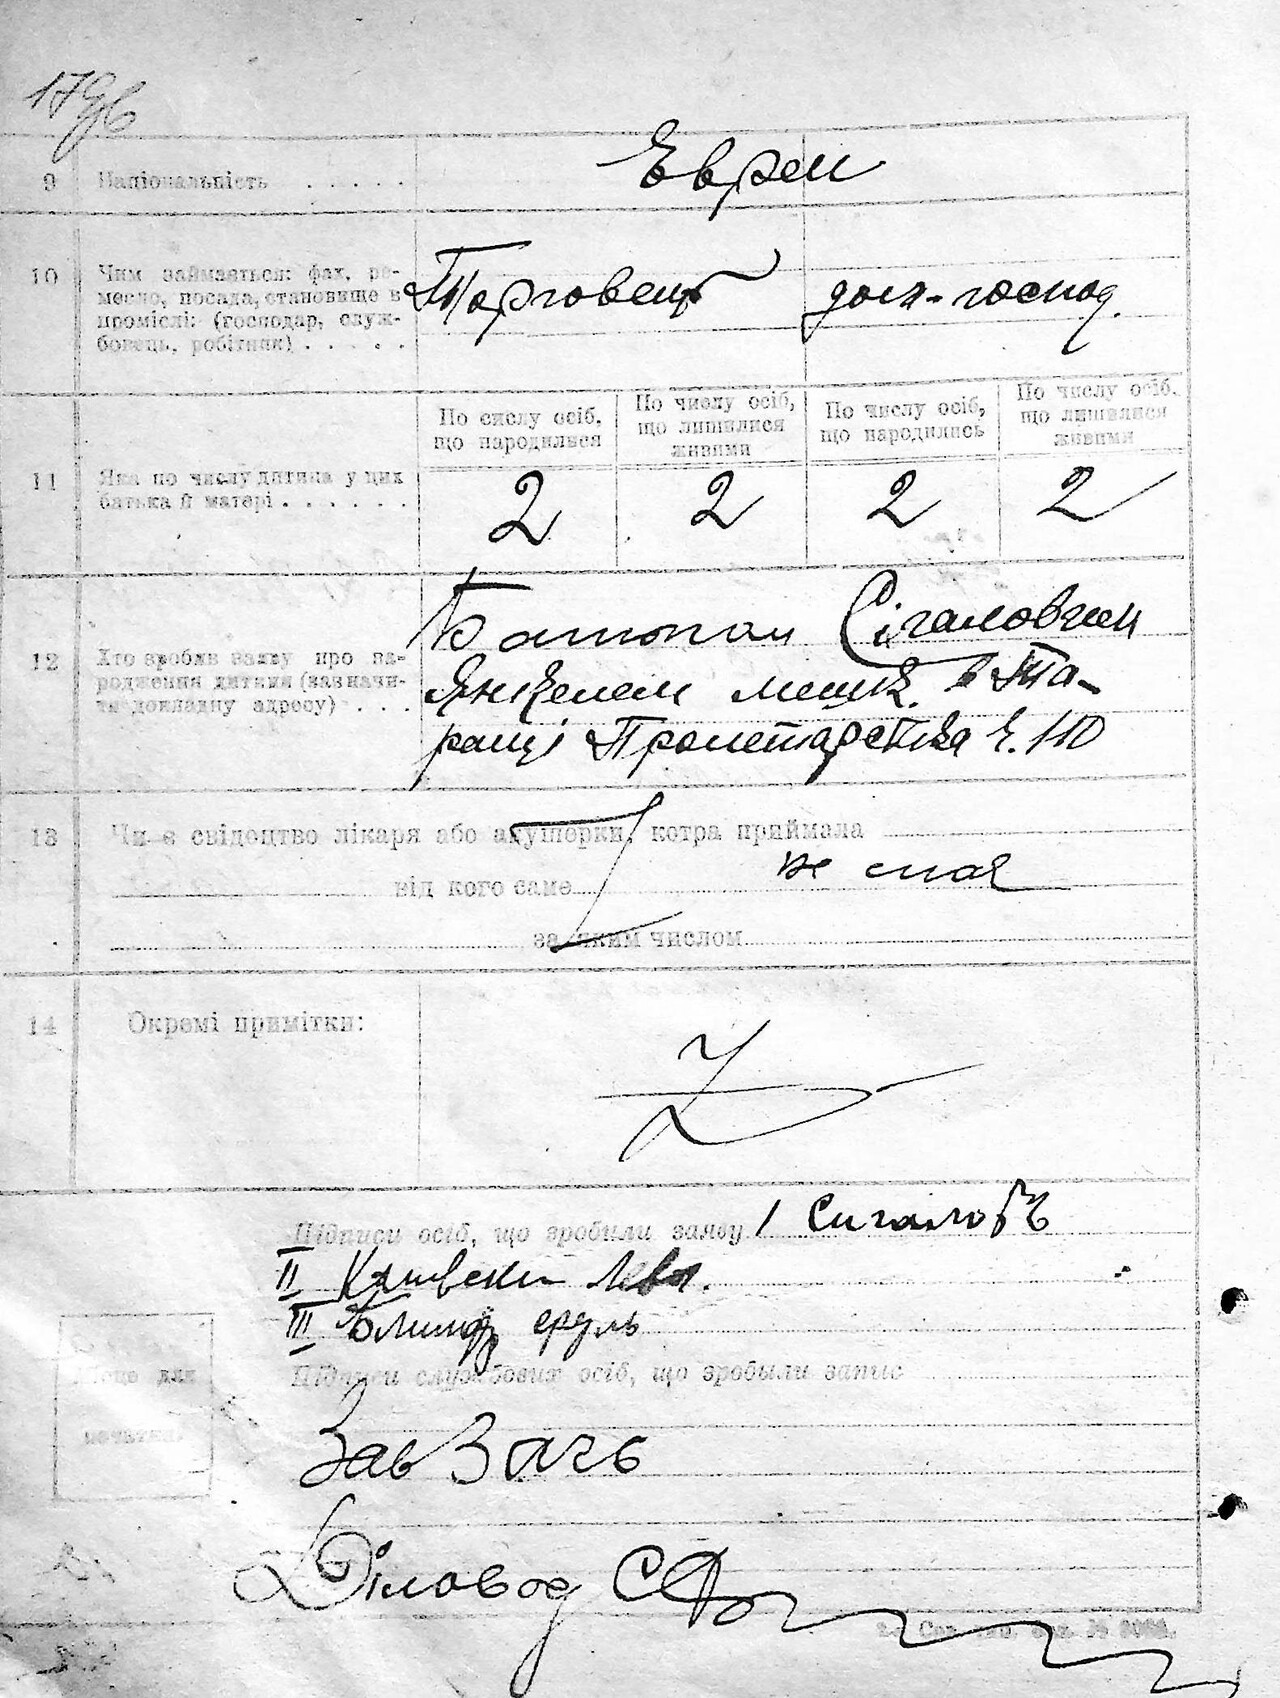 9 Національність . . . . . Евреи
10 Чим займається: фах, ре-
месно, посада, становище в
проміслі: (господар, служ-
бовець, робітник) . . . . .
Торговець дом-господ.
По числу осіб, що народилися
По числу осіб, що лишилися живими
По числу осіб, що народились
По числу осіб, що лишилися живими
11 Яка по числу дитина у цих
батька й матері . . . . . .
2 2 2 2
12 Хто зробив заяву про на-
родження дитини (зазначи-
ти докладну адресу) . . .
Батьком Сігаловким
Янкелем мешк. в Та-
ращі Пролетарська ч. 110
13 Чи є свідоцтво лікаря або акушорки, котра приймала
не має
від кого саме
за яким числом
14 Окремі примітки:
Підписи осіб, що зробили заяву 1 Сигаловъ
II
III
Підписи службових осіб, що зробыли запис
Місце для
печатки
Зав Загс
Діловод